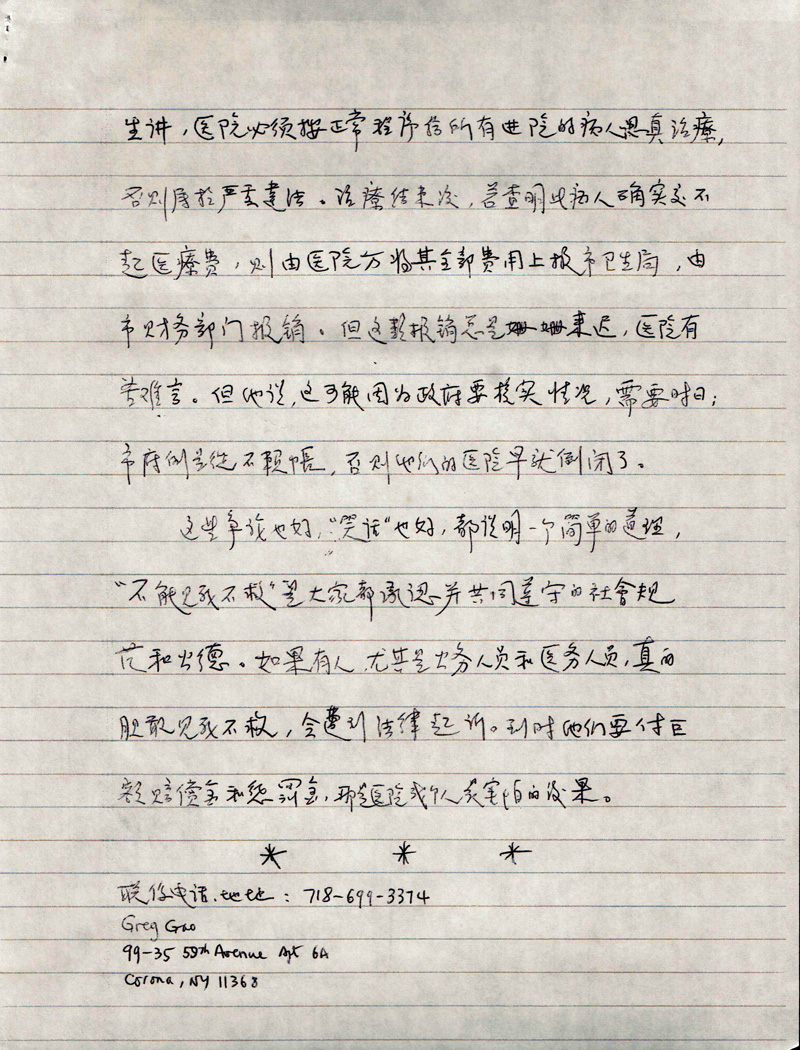 生讲，医院必须按正常程序给所有进院的病人认真治療，
否则属於严重违法。治療结束后，若查明此病人确实交不
起医療费，则由医院方将其全部费用上报市卫生局，由
市财务部门报销。但这类报销总是来迟，医院有
苦难言。但他说，这可能因为政府要核实情况，需要时日；
市府倒是从不賴帳，否则他们的医院早就倒闭了。
这些争议也好，“笑话”也好，都说明一个简单的道理，
“不能见死不救”是大家都承認并共同遵守的社會规
范和公德。如果有人，尤其是公务人员和医务人员，真的
胆敢见死不救，会遭到法律起诉。到时他们要付巨
额赔偿金和惩罚金，那是医院或个人最害怕的后果。
* * *
联络电话、地址：718-699-3374
Greg Gao
99-35 59th Avenue Apt 6A
Corona, NY 11368